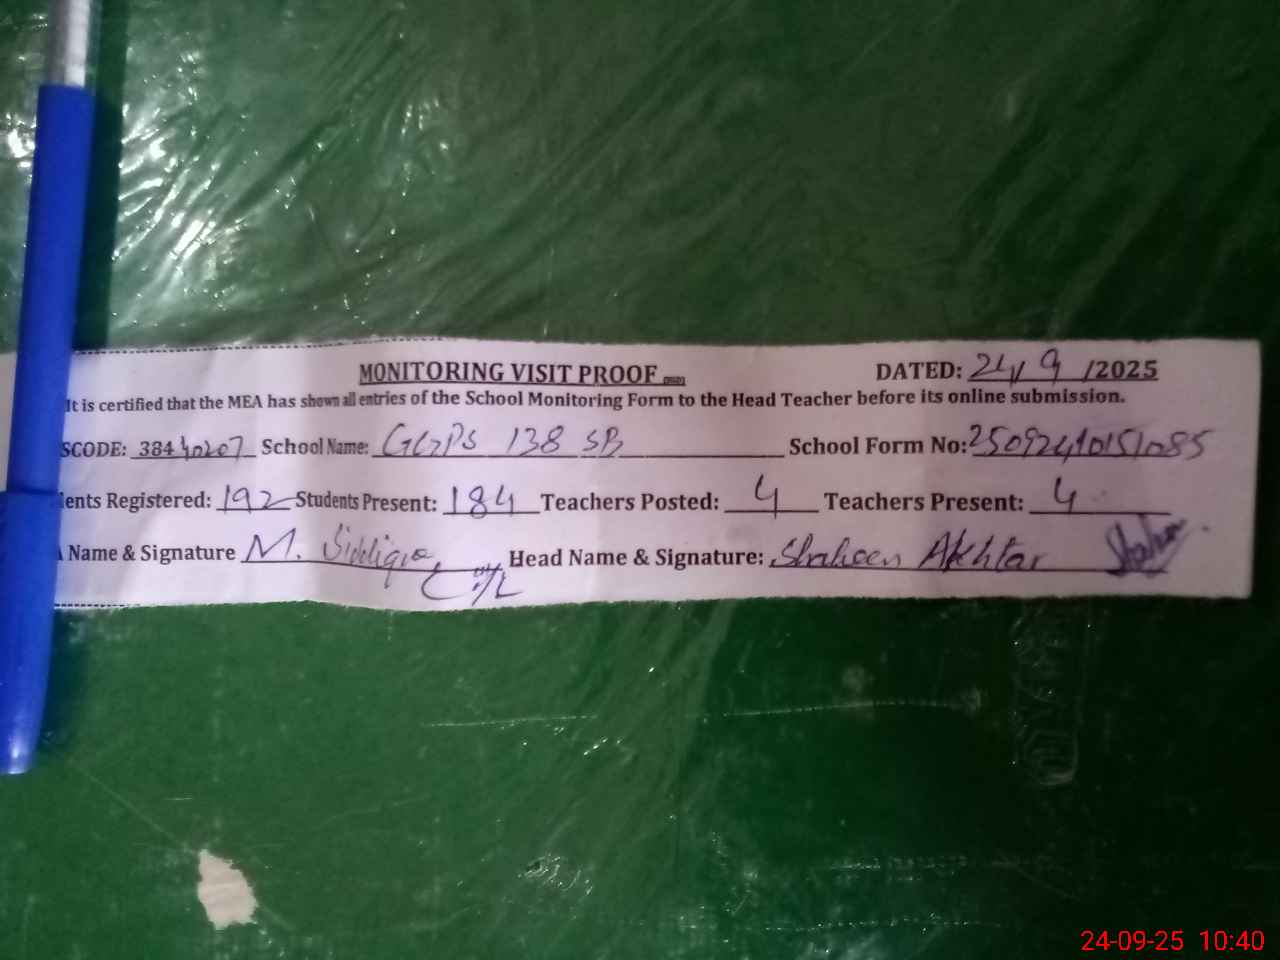 MONITORING VISIT PROOF DATED: 24/9/2025
It is certified that the MEA has shown all entries of the School Monitoring Form to the Head Teacher before its online submission.
SCODE: 38440207 School Name: GGPS 138 SB School Form No: 25092410151085
ents Registered: 192 Students Present: 184 Teachers Posted: 4 Teachers Present: 4
Name & Signature M. Siddique Head Name & Signature: Shaheen Akhtar Shaheen
24-09-25 10:40